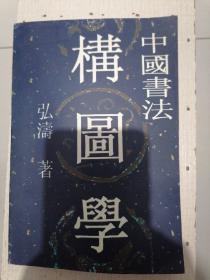 中國書法
構圖學
弘濤 著